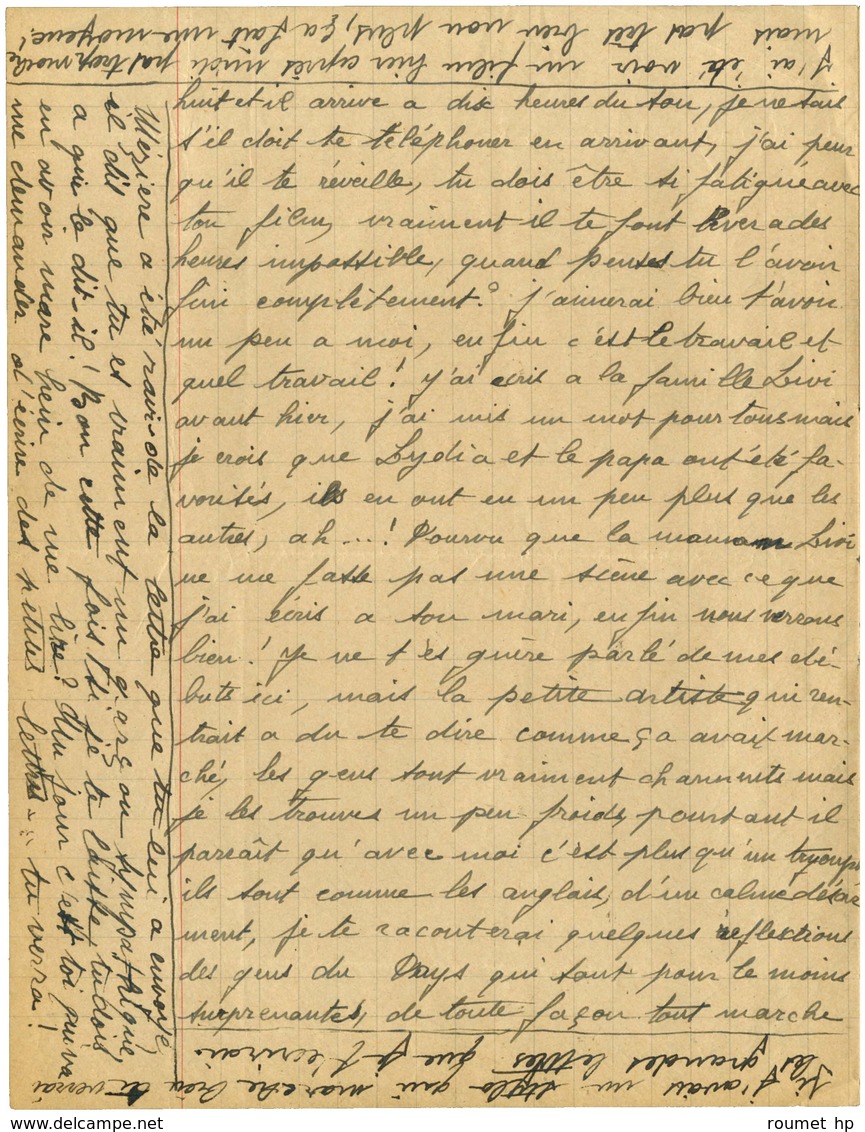 huit et il arrive a dix heures du soir, je ne sais
s'il doit te téléphoner en arrivant, j'ai peur
qu'il te réveille, tu dois être si fatigué avec
ton film, vraiment il te font lever a des
heures impossible, quand penses tu l'avoir
fini complètement? j'aimerai bien t'avoir
un peu a moi, enfin c'est le travail et
quel travail! J'ai écris a la famille Livi
avant hier, j'ai mis un mot pour tous mais
je crois que Lydia et le papa ont été fa-
vorisés, ils en ont eu un peu plus que les
autres, ah...! Pourvu que la maman Livi
ne me fasse pas une scène avec ce que
j'ai écris a son mari, enfin nous verrons
bien! Je ne t'es guère parlé de mes dé-
buts ici, mais la petite artiste qui ren-
trait a du te dire comme ça avait mar-
ché, les gens sont vraiment charments mais
je les trouves un peu froids, pourtant il
parcaît qu'avec moi c'est plus qu'un
ils sont comme les anglais, d'un calme désar
ment, je te raconterai quelques reflections
des gens du Pays qui sont pour le moins
surprenantes, de toute façon tout marche
Si j'avais un stylo qui marche bien tu verrai
les grandes lettres que je t'écrirai.
Mézière a été ravi de la lettre que tu lui a envoyé,
il dis que tu es vraiment un garçon sympathique,
a qui le dit-il! Bon cette fois si je te laisse, tu dois
en avoir mare hein de me lire? Un jour c'est toi qui va
me demander d'écrire des petites lettres... tu verra!
J'ai été voir un film hier après midi pas trop moche
mais pas très bien non plus, ça fait une moyenne!
roumet hp